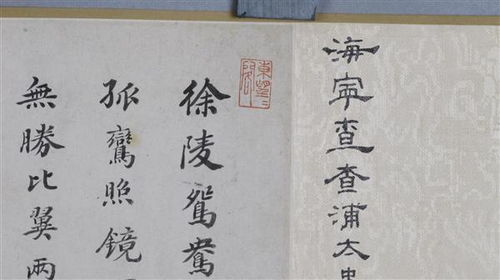 海寧查查浦太
徐陵鴛鴦
孤鸞照鏡
無勝比翼兩